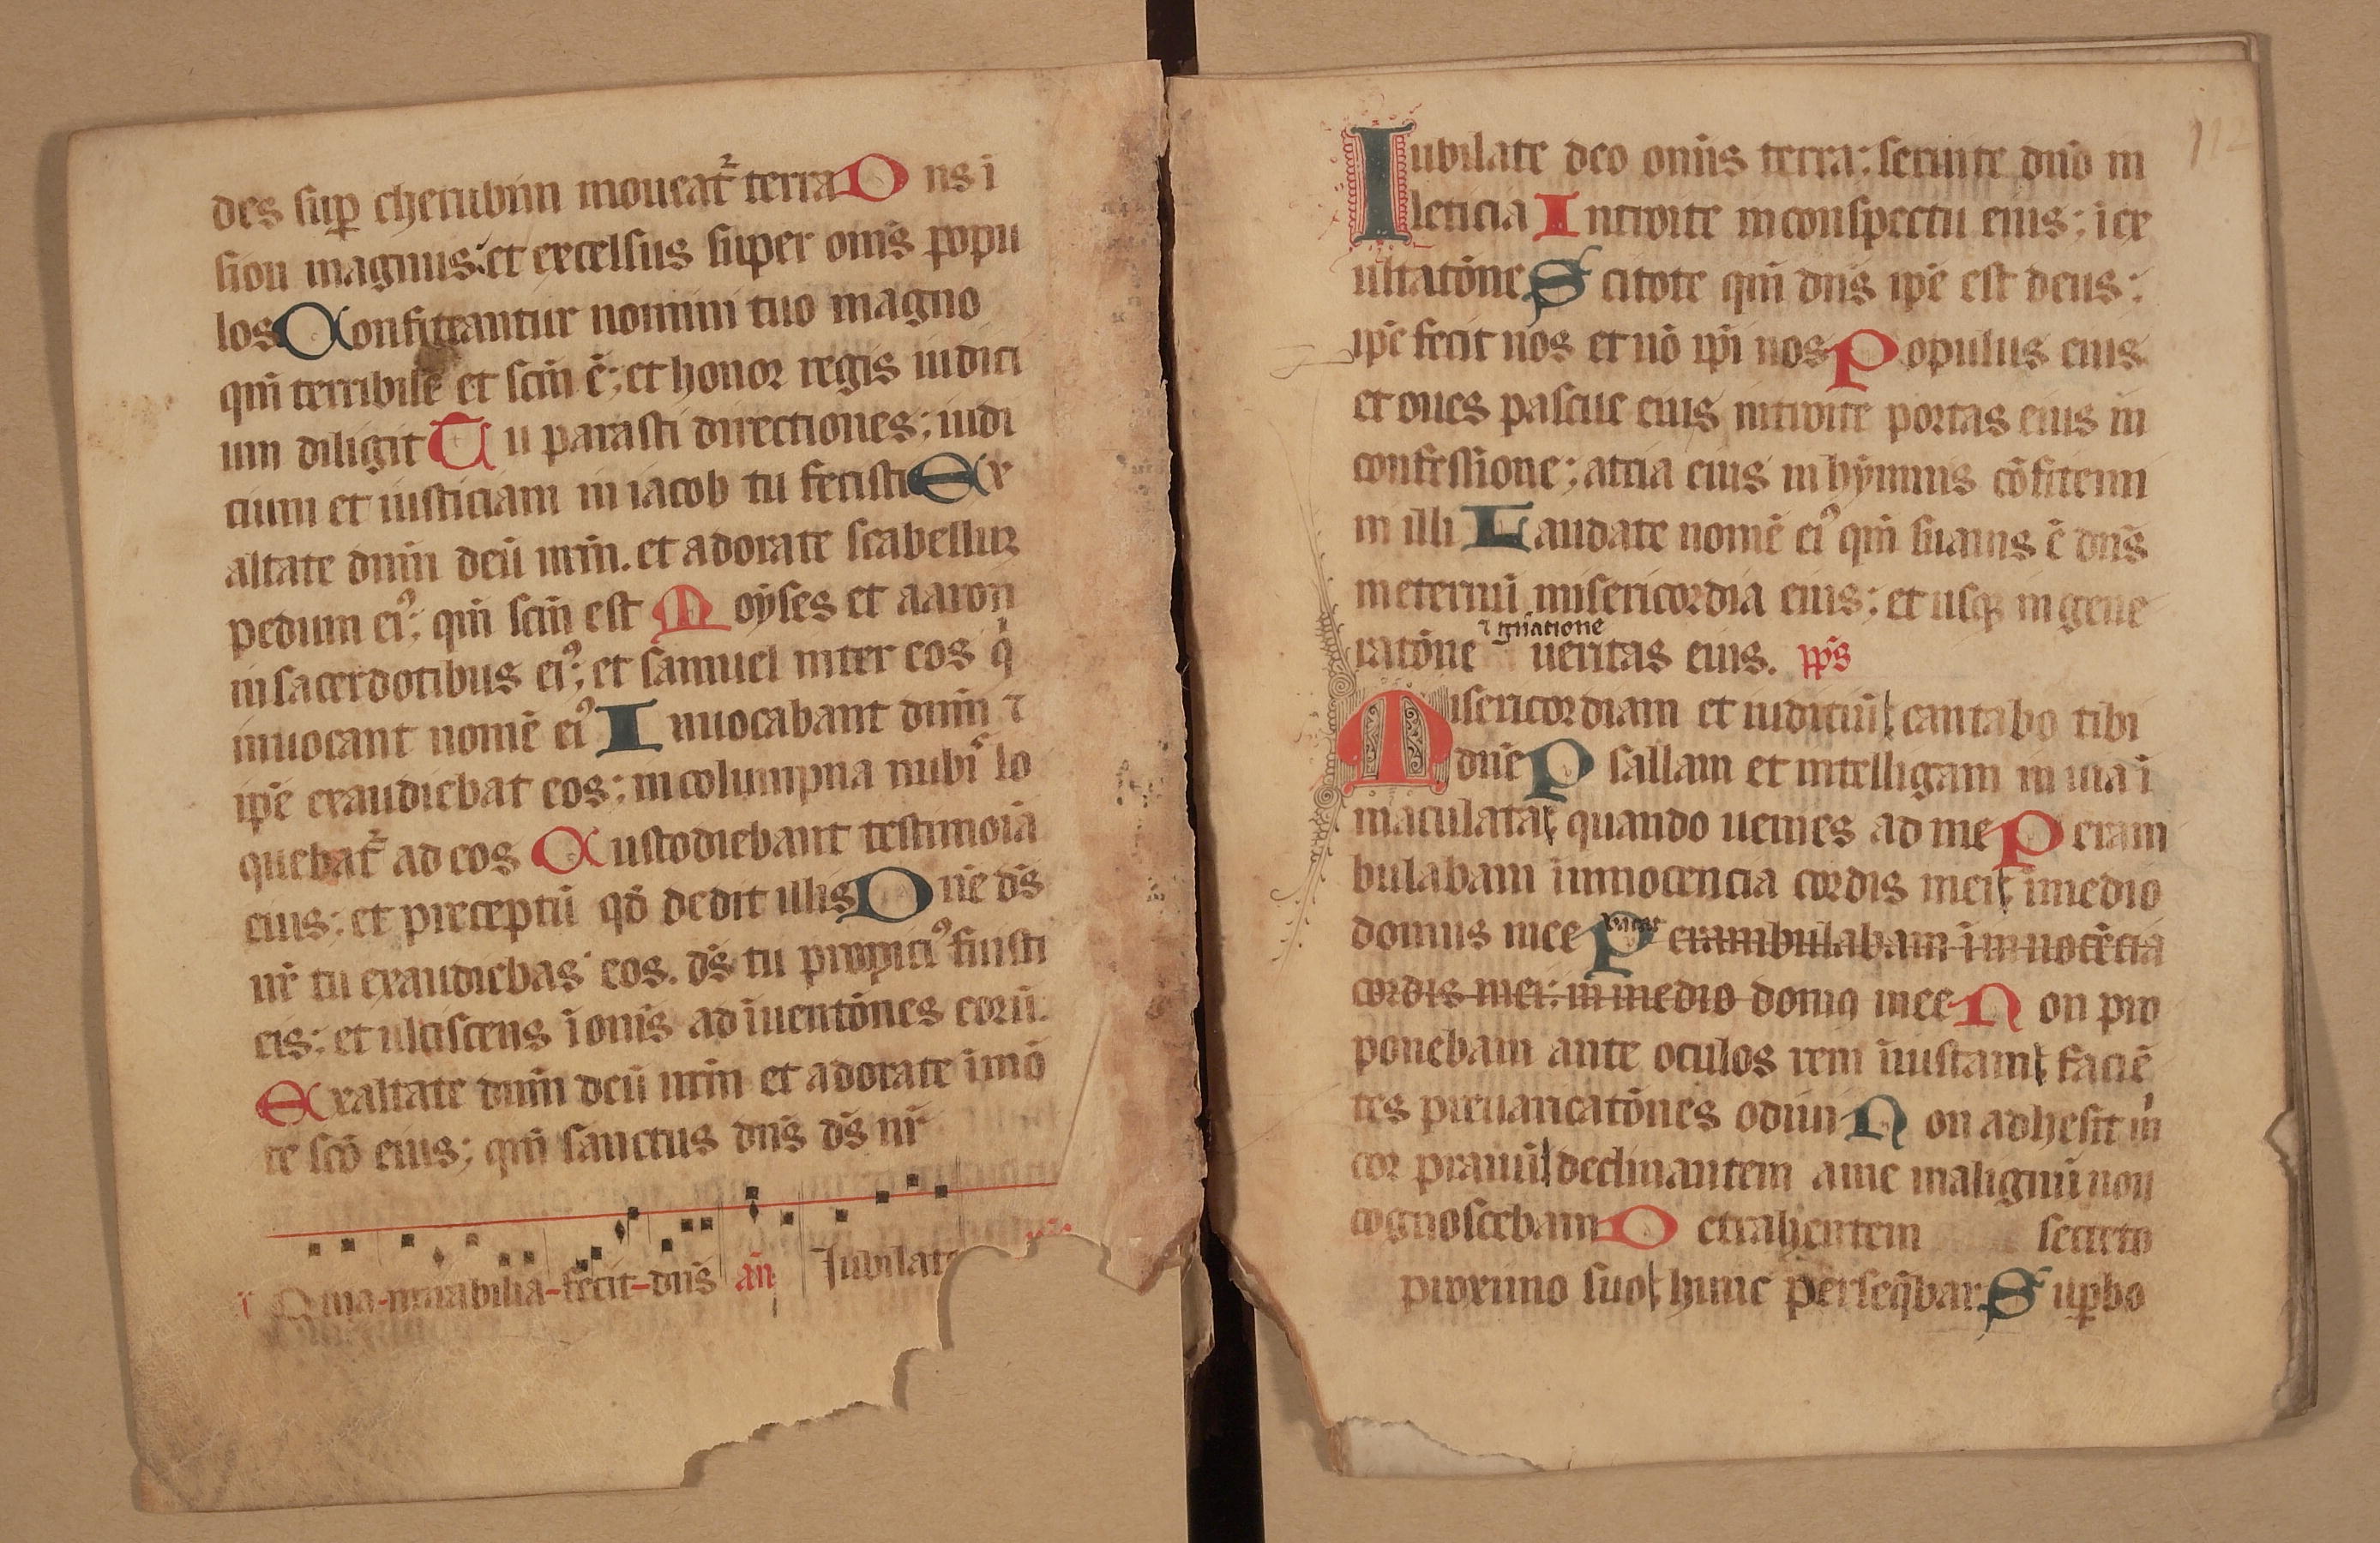 des suꝑ cherubim moueat᷑ terra Dns ī
sion magnus: et excelsus super om̄s popu
los Confiteantur nomini tuo magno
qm̄ terribile et scm̄ ē; et honor regis iudici
um diligit Tu parasti directiones; iudi
cium et iusticiam in iacob tu fecisti Ex
altate dnm̄ deū nrm̄. et adorate scabelluꝫ
pedum eiꝰ; qm̄ scm̄ est Moyses et aaron
in sacerdotibus eiꝰ; et samuel inter eos q̇
inuocant nomē eiꝰ Inuocabant dnm̄ ⁊
ip̄e exaudiebat eos; in columpna nubiˢ lo
quebat᷑ ad eos Custodiebant testimoīa
eius: et preceptū qd̄ dedit illis Dn̄e ds̄
nr̄ tu exaudiebas eos. ds̄ tu propiciꝰ fuisti
eis: et ulciscens ī om̄s adīuentōnes eorū.
Exaltate dnm̄ deū nrm̄ et adorate ī mō
te scō eius; qm̄ sanctus dns̄ ds̄ nr̄
Quia mirabilia fecit dns̄ an̄ Iubilate
112
Iubilate deo omīs terra: seruite dn̄o in
leticia Introite in conspectu eius: ī ex
ultatōne Scitote qm̄ dns̄ ip̄e est deus:
ip̄e fecit nos et nō ip̄i nos Populus eius
et oues pascue eius introite portas eius in
confessione; atria eius in hẏmnis cōfitemi
ni illi Laudate nomē eiꝰ qm̄ suauis ē dns̄
in eternū misericordia eius; et usqꝫ in gene
⁊ gn̄atione
ratōne veritas eius. pp̄s
Misericordiam et iudiciū cantabo tibi
dn̄e Psallam et intelligam in uia ī
maculata quando uenies ad me Peram
bulabam ī innocencia cordis mei ī medio
vacat
domus mee Perambulabam ī innocēcia
cordis mei: in medio domꝰ mee Non pro
ponebam ante oculos rem īiustam faciē
tes preuaricatōnes odiui Non adhesit m̍
cor prauū declinantem a me malignū non
cognoscebam Detrahentem secreto
proximo suo hunc perseq̄bar Suꝑbo